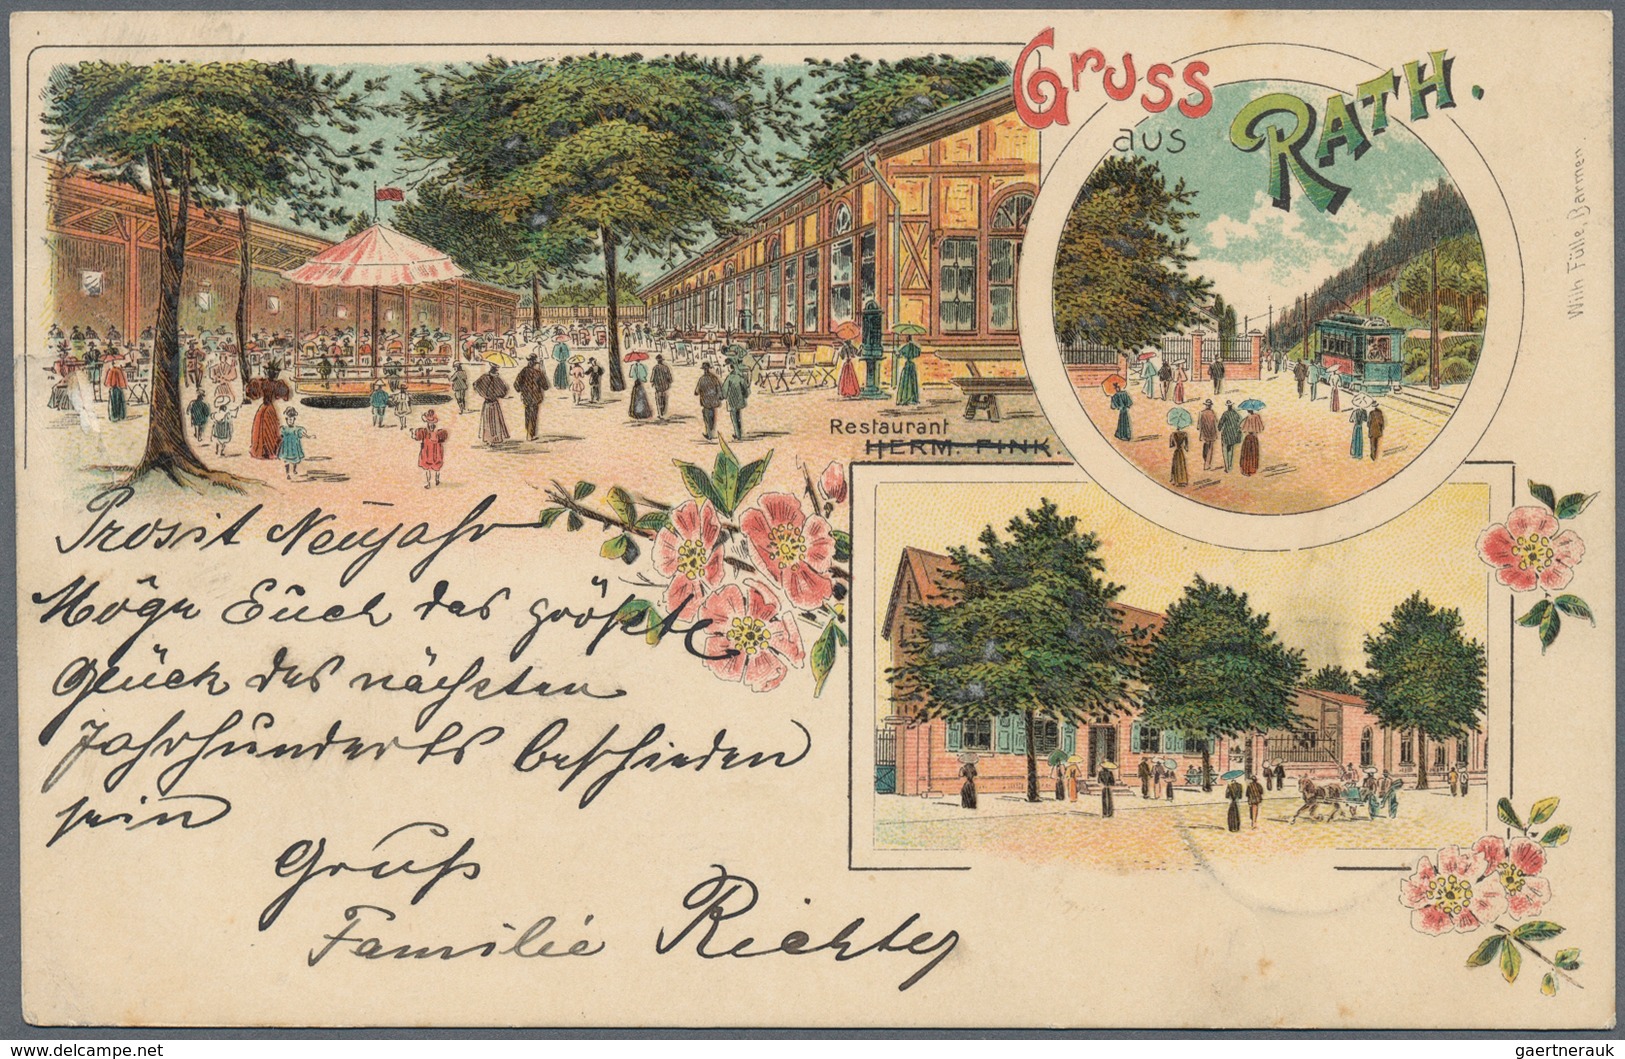 Gruss
aus
RATH.
Wilh Fülle, Barmen
Restaurant
HERM. FINK.
Prosit Neujahr
Möge Euch das größte
Glück des nächsten
Jahrhunderts beschieden
sein
Gruß
Familie Richter
© www.delcampe.net
gaertnerauk